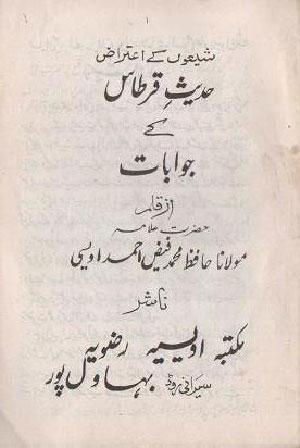 ۱
شیعوں کے اعتراض
حدیثِ قرطاس
کے
جوابات
از قلم
حضرت علامہ
مولانا حافظ محمد فیض احمد اویسی
ناشر
مکتبہ اویسیہ رضویہ
سیرانی روڈ بہاولپور